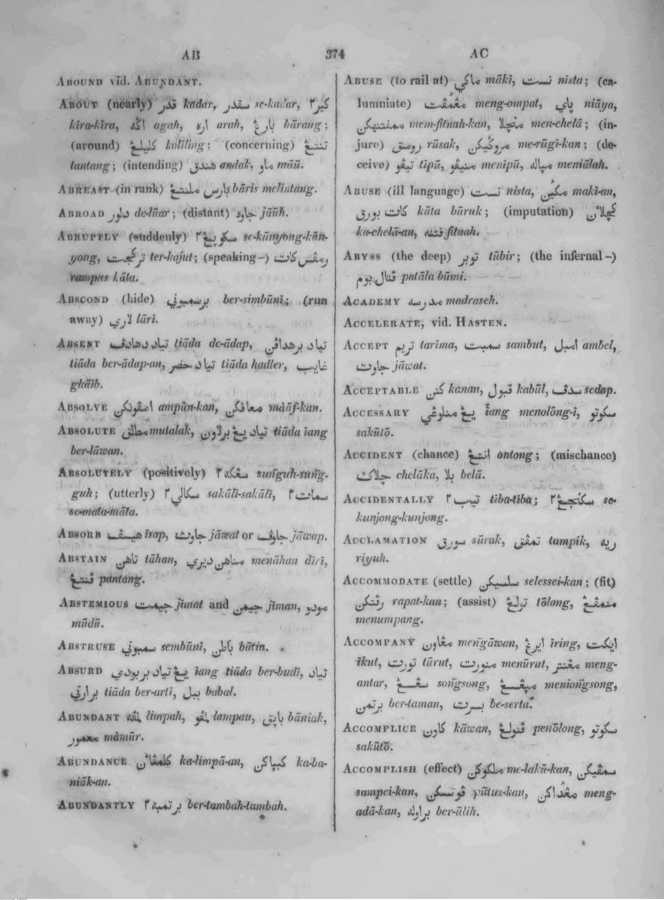 AB
374
AC
ABOUND vid. ABUNDANT.
ABOUT (nearly) قدر kadar, سقدر se-kadar, كير٢
kīra-kīra, اگه agah, اره arah, بارغ bārang;
(around) كليلغ kolīling; (concerning) تنتغ
tantang; (intending) هندق andak, ماو māū.
ABREAST (in rank) بارس ملنتغ bāris melintang.
ABROAD دلور de-lūar; (distant) جاوه jāūh.
ABRUPTLY (suddenly) se-kūnyong-kūn-
yong, تركجت ter-kajut; (speaking-)
rampas kāta.
ABSCOND (hide) برسمبوني ber-simbūni; (run
away) لاري lāri.
ABSENT تياد دهادف tiāda de-ādap, تياد برهداڤن
tiāda ber-ādap-an, تياد حضر tiāda hadler, غايب
ghāib.
ABSOLVE امڤونكن ampūn-kan, معافكن māāf-kan.
ABSOLUTE مطلق mutalak, تياد يغ برلاون tiāda iang
ber-lāwan.
ABSOLUTELY (positively) سغكه٢ sung̃guh-sung̃-
guh; (utterly) سكالي٢ sakāli-sakāli, سمات٢
se-mata-māta.
ABSORB هيسف īrap, جاوت jāwat or جاوف jāwap.
ABSTAIN تاهن tāhan, مناهن ديري menāhan dīri,
ڤنتغ pantang.
ABSTEMIOUS جيمت jīmat and جيمن jīman, مودو
mūdū.
ABSTRUSE سمبوني sembūni, باطن bātin.
ABSURD يغ تياد بربودي iang tiāda ber-budī, تياد
برارتي tiāda ber-arti, ببل babal.
ABUNDANT لمڤه limpah, لمڤو lampau, باڽق bāniak,
معمور māmūr.
ABUNDANCE كلمڤاءن ka-limpā-an, كباڽاكن ka-ba-
niāk-an.
ABUNDANTLY برتمبه٢ ber-tambah-tambah.
ABUSE (to rail at) ماكي māki, نست nista; (ca-
lumniate) مغمڤت meng-ompat, نياي niāya,
ممفتنهكن mem-fitnah-kan, منچلا men-chelā; (in-
jure) روسق rūsak, مروگيكن me-rūgi-kan; (de-
ceive) تيڤو tīpū, منيڤو menīpū, مڽاله meniālah.
ABUSE (ill language) نست nista, مكين maki-an,
كات بورق kāta būruk; (imputation) كچلاءن
ka-chelā-an, فتنه fitnah.
ABYSS (the deep) توبر tūbir; (the infernal-)
ڤتال بوم patāla būmi.
ACADEMY مدرسه madraseh.
ACCELERATE, vid. HASTEN.
ACCEPT تريم tarīma, سمبت sambut, امبل ambel,
جاوت jāwat.
ACCEPTABLE كنن kanan, قبول kabūl, سدف sedap.
ACCESSARY يغ منولوغي iang menolōng-i, سكوتو
sakūtō.
ACCIDENT (chance) انتغ ontong; (mischance)
چلاك chelāka, بلا belā.
ACCIDENTALLY تيب٢ tiba-tiba; سكنجغ٢ se-
kunjong-kunjong.
ACCLAMATION سورق sūrak, تمڤق tampik, ريه
riyuh.
ACCOMMODATE (settle) سلسيكن selessei-kan; (fit)
رڤتكن rapat-kan; (assist) تولغ tōlong, منمڤغ
menumpang.
ACCOMPANY مغاون meng̃āwan, ايرغ īring, ايكت
īkut, تورت tūrut, منورت menūrut, مغنتر meng-
antar, سغسغ song̃song, مڽغسغ meniong̃song,
برتمن ber-taman, بسرت be-serta.
ACCOMPLICE كاون kāwan, ڤنولغ penōlong, سكوتو
sakūtō.
ACCOMPLISH (effect) ملكوكن me-lakū-kan, سمڤيكن
sampei-kan, ڤوتسكن pūtus-kan, مغداكن meng-
adā-kan, براوله ber-ūlih.